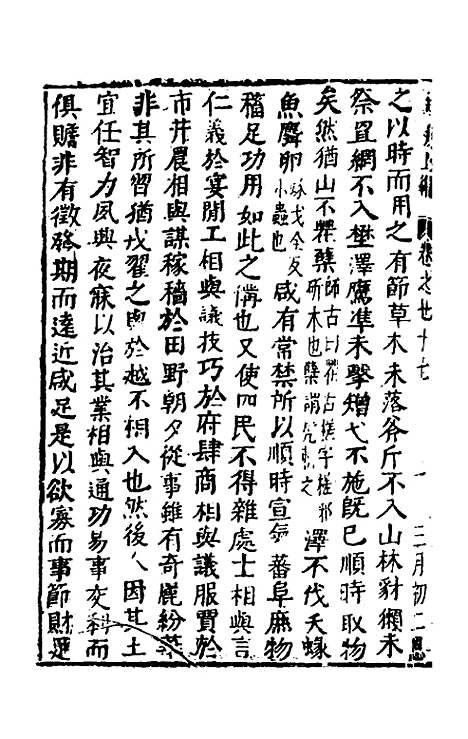 卷之廿十七
三月初二
之以時而用之有節草木未落斧斤不入山林豺獺未
祭罝網不入壄澤鷹隼未擊矰弋不施既已順時取物
矣然猶山不槎蘖師古曰槎古槎字槎邪所木也蘖謂澤不伐夭蝝
魚麛卵小蟲也咸有常禁所以順時宣氣蕃阜庶物
稸足功用如此之備也又使四民不得雜處士相與言
仁義於宴閒工相與議技巧於府肆商相與議服賈於
市井農相與謀稼穡於田野朝夕從事雖有奇麗紛華
非其所習猶戎翟之與於越不相入也然後人因其土
宜任智力夙與夜寐以治其業相與通功易事交利而
俱贍非有徵發期而遠近咸足是以欲寡而事節財足